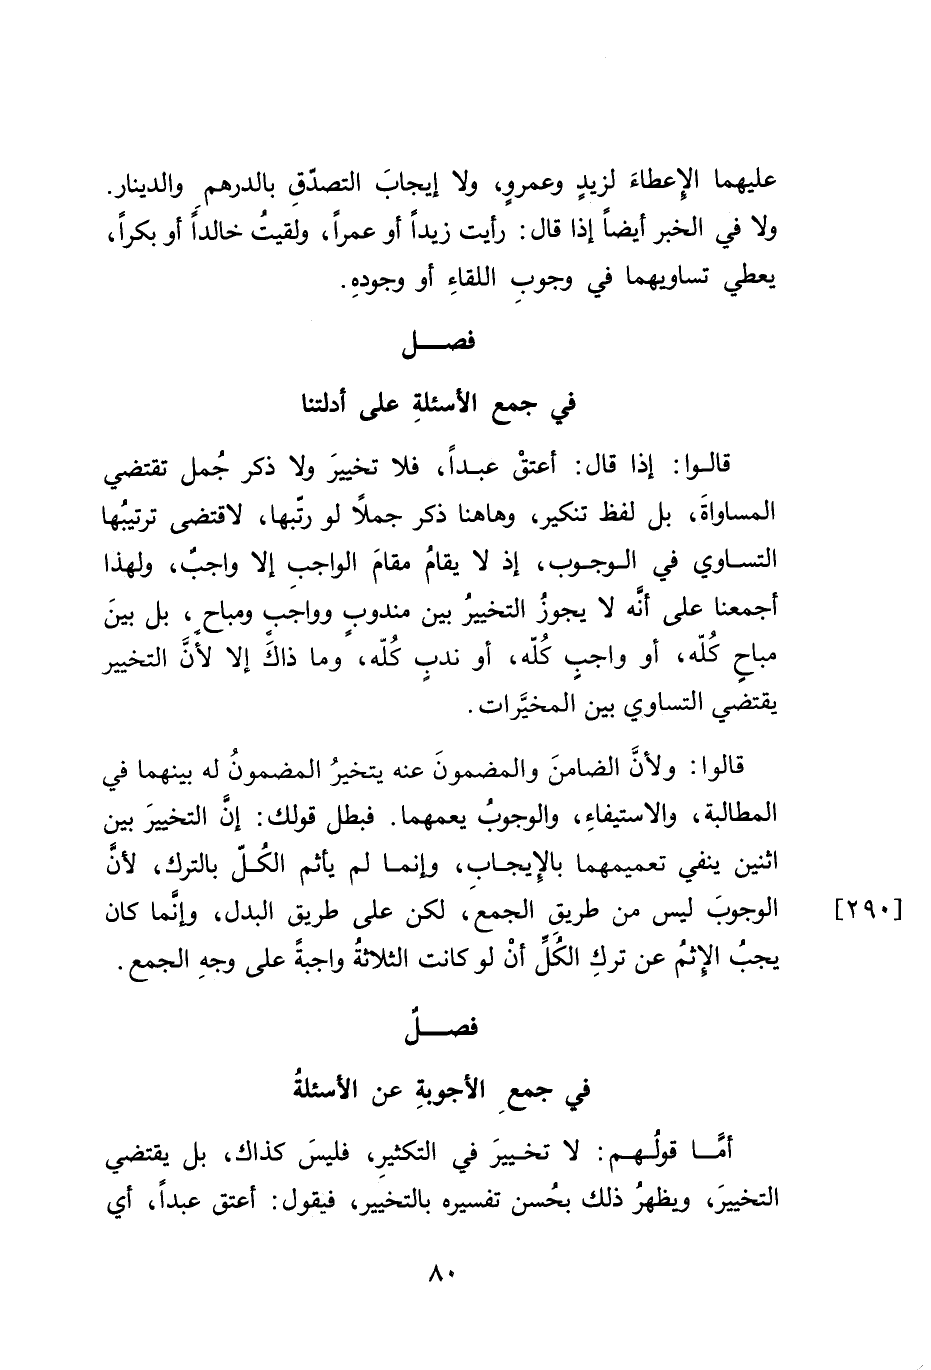 عليهما الإِعطاءَ لزيدٍ وعمروٍ، ولا إيجابَ التصدّقِ بالدرهمِ والدينار.
ولا في الخبر أيضاً إذا قال: رأيت زيداً أو عمراً، ولقيتُ خالداً أو بكراً،
يعطي تساويهما في وجوبِ اللقاءِ أو وجودهِ.
فصـــل
في جمع الأسئلةِ على أدلتنا
قالـوا: إذا قال: أعتقْ عبـداً، فلا تخييرَ ولا ذكر جُمل تقتضي
المساواةَ، بل لفظ تنكير، وهاهنا ذكر جملًا لو رتّبها، لاقتضى ترتيبُها
التسـاوي في الـوجـوب، إذ لا يقامُ مقامَ الواجبِ إلا واجبٌ، ولهذا
أجمعنا على أنَّه لا يجوزُ التخييرُ بين مندوبٍ وواجبٍ ومباحٍ، بل بينَ
مباحٍ كُلّه، أو واجبٍ كُلّه، أو ندبٍ كُلّه، وما ذاكَ إلا لأنَّ التخيير
يقتضي التساوي بين المخيَّرات.
قالوا: ولأنَّ الضامنَ والمضمونَ عنه يتخيرُ المضمونُ له بينهما في
المطالبة، والاستيفاءِ، والوجوبُ يعمهما. فبطل قولك: إنَّ التخييرَ بين
اثنين ينفي تعميمهما بالإِيجـابِ، وإنمـا لم يأثم الكُـلّ بالترك، لأنَّ
الوجوبَ ليس من طريقِ الجمع، لكن على طريق البدل، وإنَّما كان [٢٩٠]
يجبُ الإِثمُ عن تركِ الكُلِّ أنْ لو كانت الثلاثةُ واجبةً على وجهِ الجمع.
فصـــلٌ
في جمعِ الأجوبةِ عن الأسئلةُ
أمَّـا قولُـهـم: لا تخـييرَ في التكثيرِ، فليسَ كذاك، بل يقتضي
التخييرَ، ويظهرُ ذلك بحُسن تفسيره بالتخيير، فيقول: أعتق عبداً، أي
٨٠